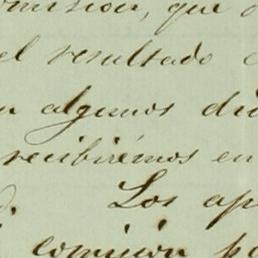 omision, que
el resultado
algunos
recibirémos en
Los
comision